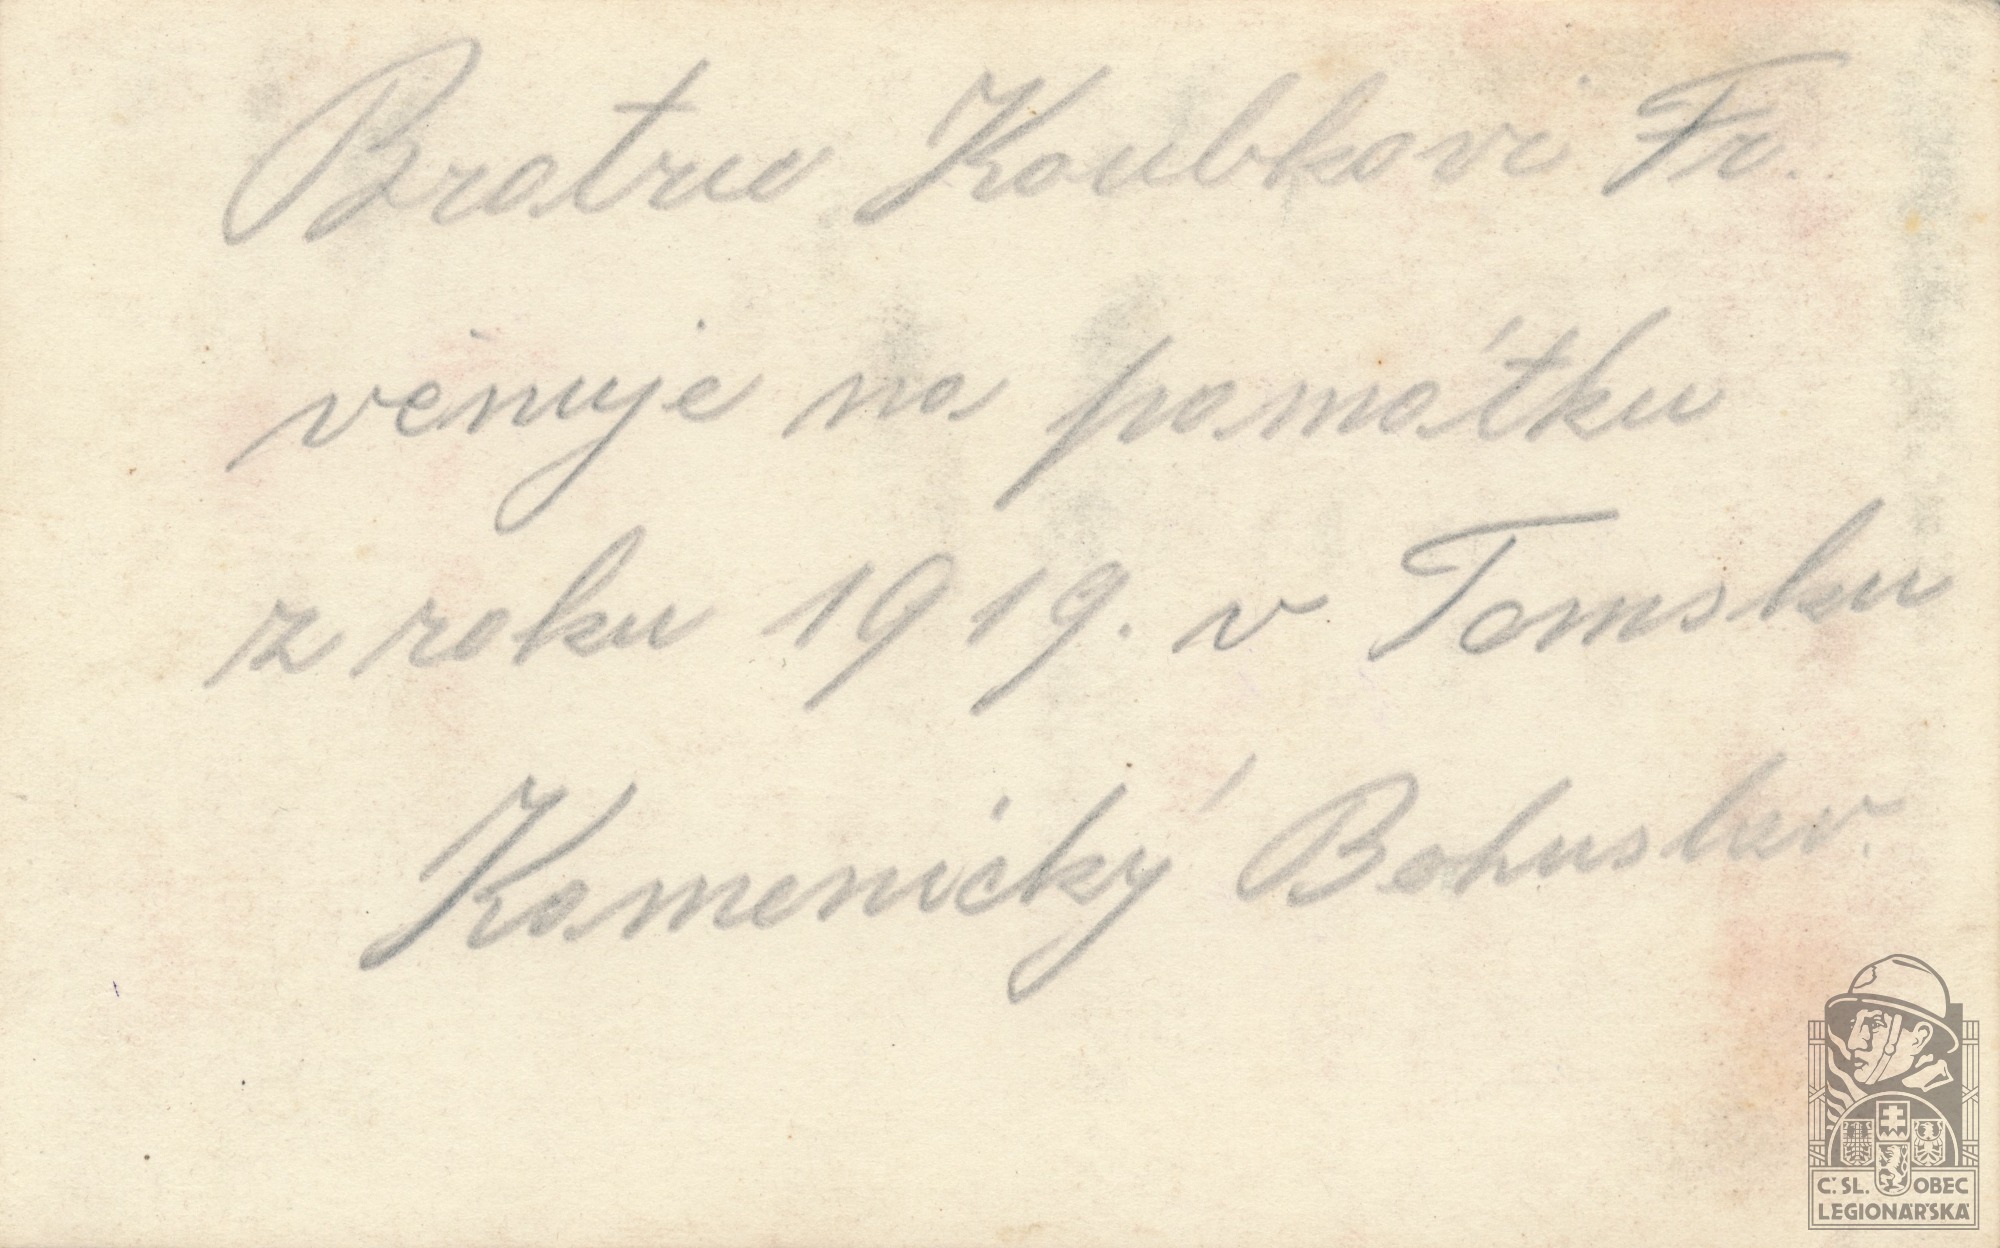 Bratru Koubkovi Fr.
věnuje na památku
z roku 1919. v Tomsku
Kamenický Bohuslav.
Č. SL. OBEC
LEGIONÁŘSKÁ